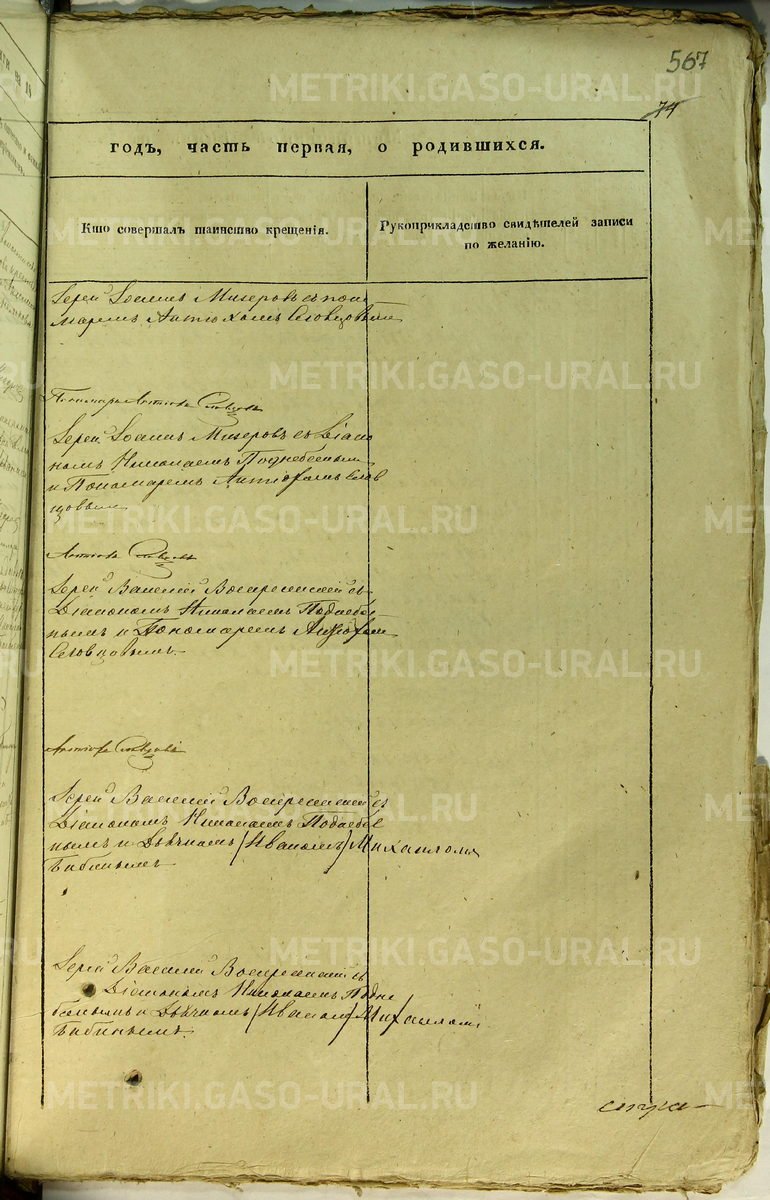 567
74
годъ, часть первая, о родившихся.
Кто совершалъ таинство крещенія.
Рукоприкладство свидѣтелей записи
по желанію.
Іерей Іоаннъ Мизеровъ съ поно
маремъ Антіохомъ Словцовымъ
Пономарь Антіохъ Словцовъ
Іерей Іоаннъ Мизеровъ съ Діако
номъ Николаемъ Поднебеснымъ
и Пономаремъ Антіохомъ Слов
цовымъ
Антіохъ Словцовъ
Іерей Василій Воскресенскій съ
Діакономъ Николаемъ Поднебес
нымъ и Пономаремъ Антіохомъ
Словцовымъ.
Антіохъ Словцовъ
Іерей Василій Воскресенскій съ
Діакономъ Николаемъ Поднебес
нымъ и Дьячкомъ (Иваномъ) Михаиломъ
Бабинымъ
Іерей Василій Воскресенскій съ
Діакономъ Николаемъ Подне
беснымъ и Дьячкомъ (Иваномъ) Михаиломъ
Бабинымъ.
METRIKI.GASO-URAL.RU